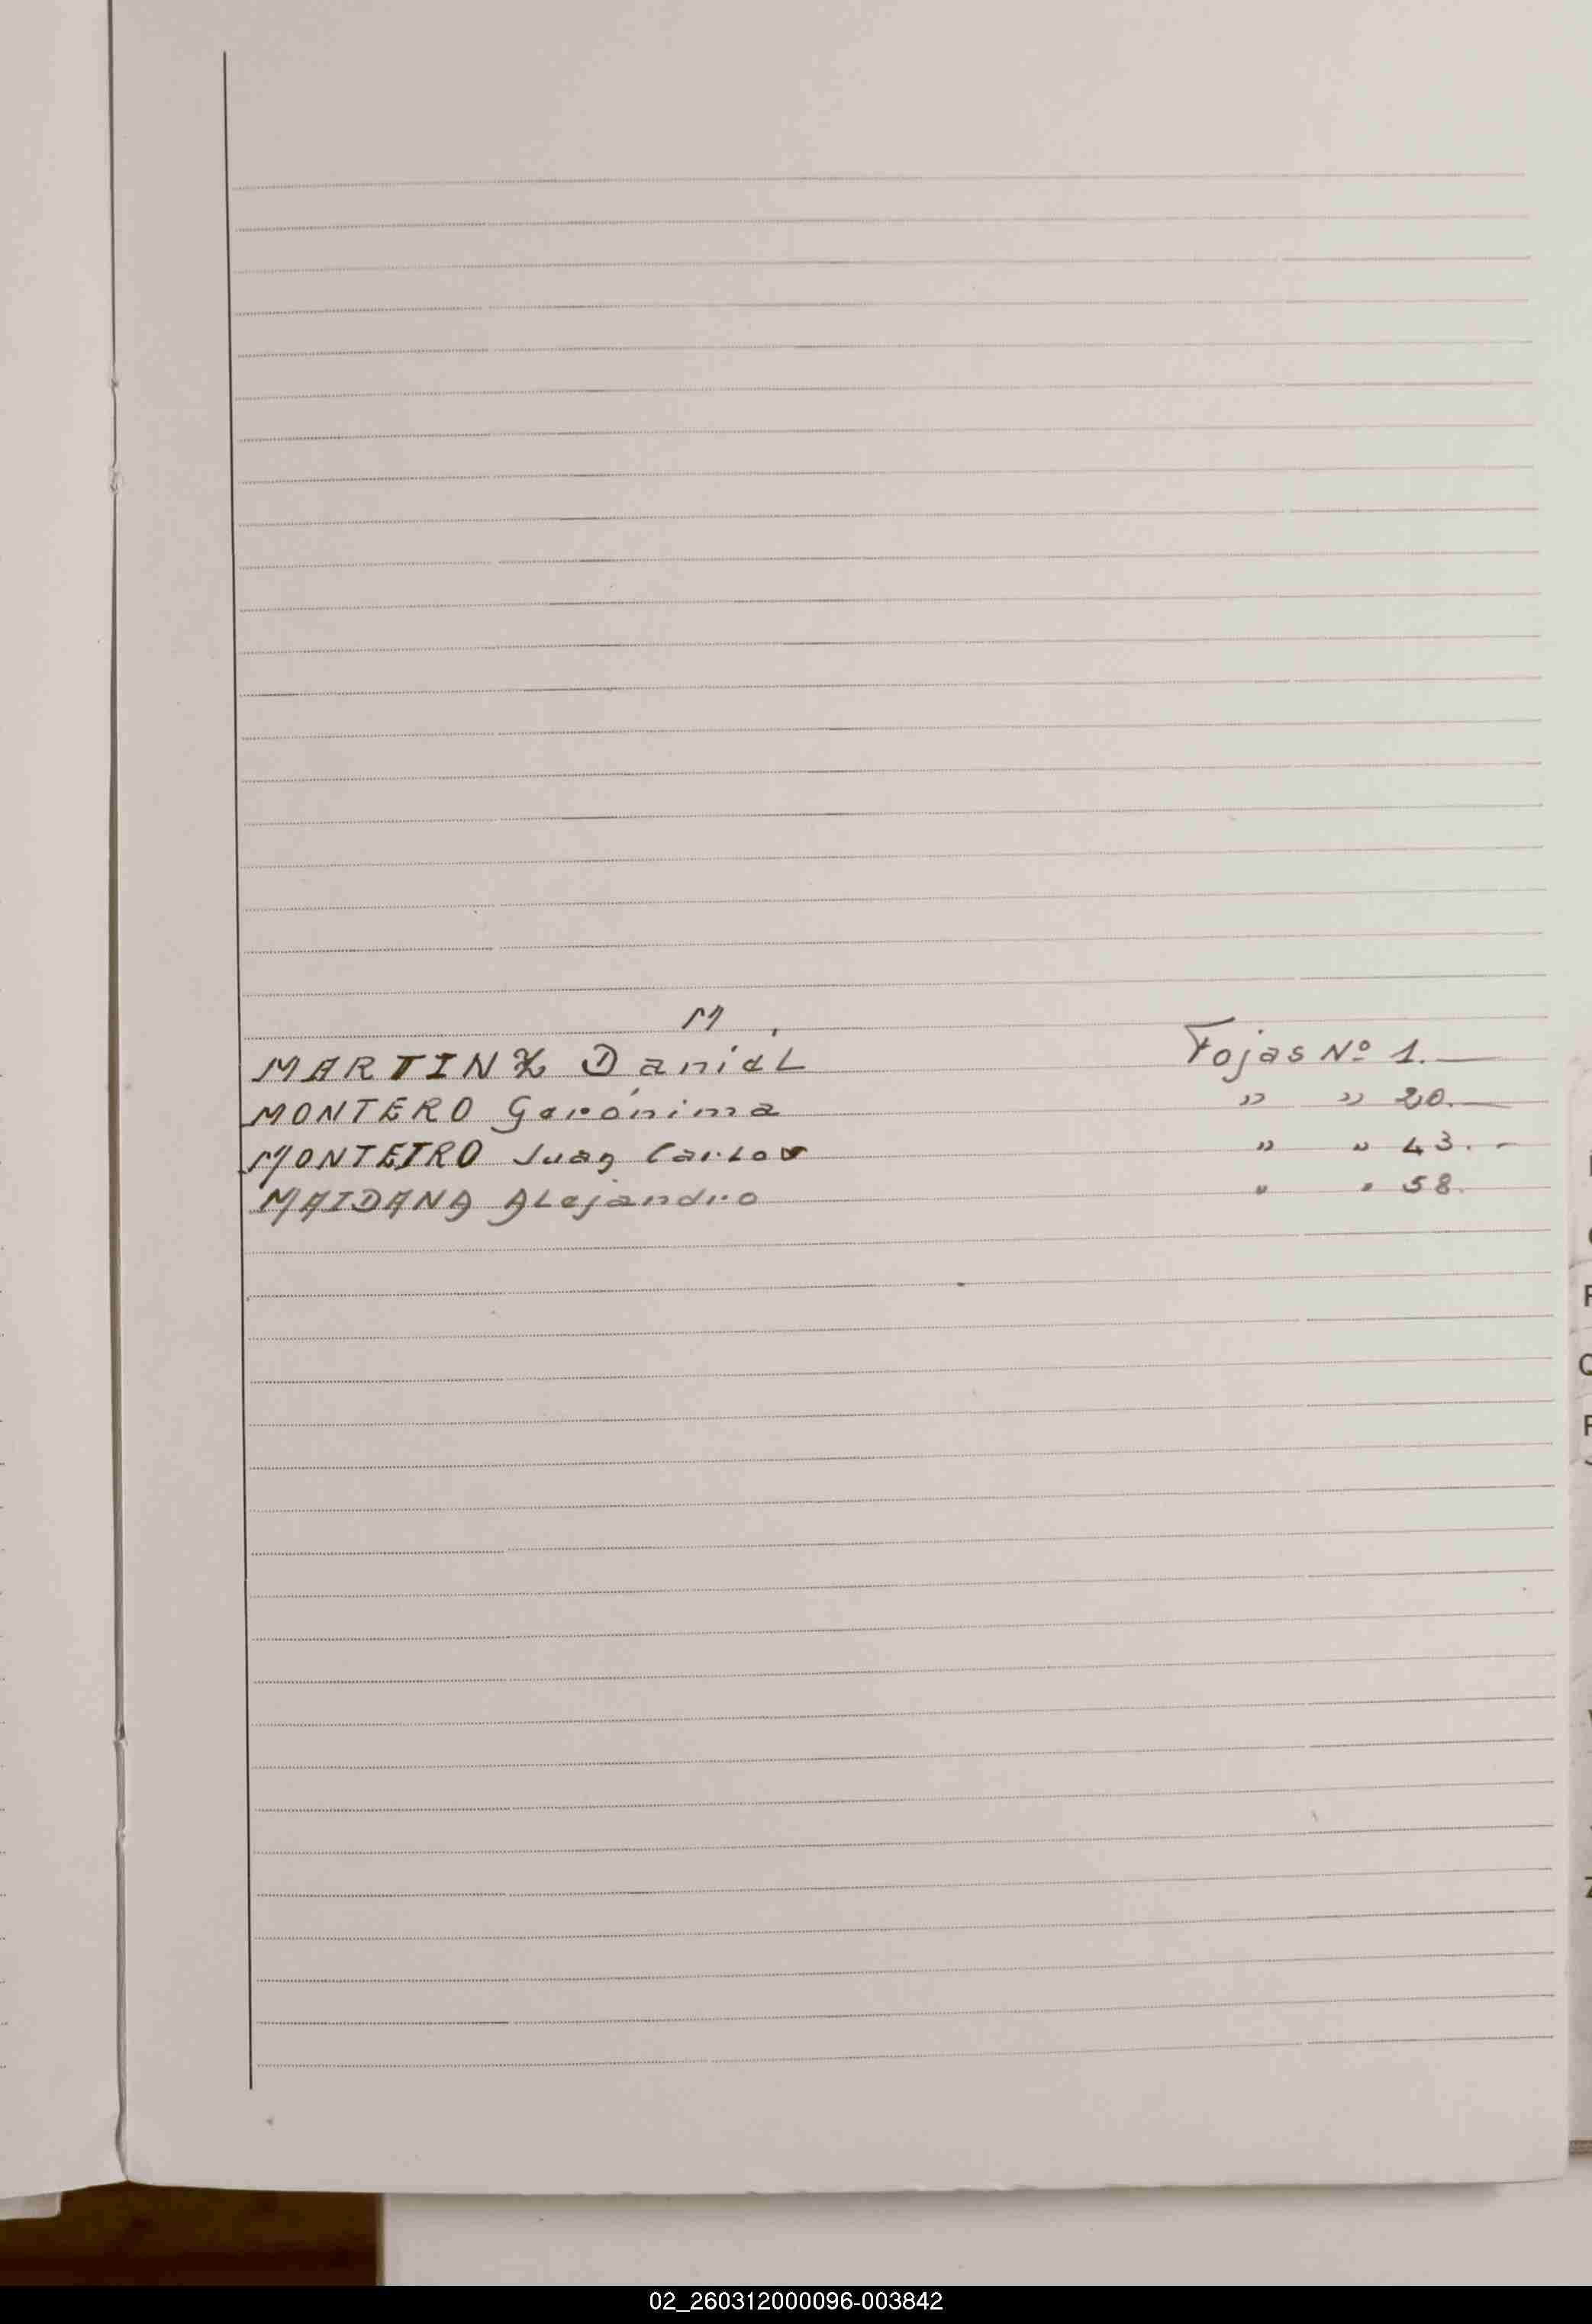 M
MARTINZ Daniel Fojas Nº 1.—
MONTERO Gerónima " " 20.—
MONTEIRO Juan Carlos " " 43.-
MAIDANA Alejandro " " 58.
02_260312000096-003842